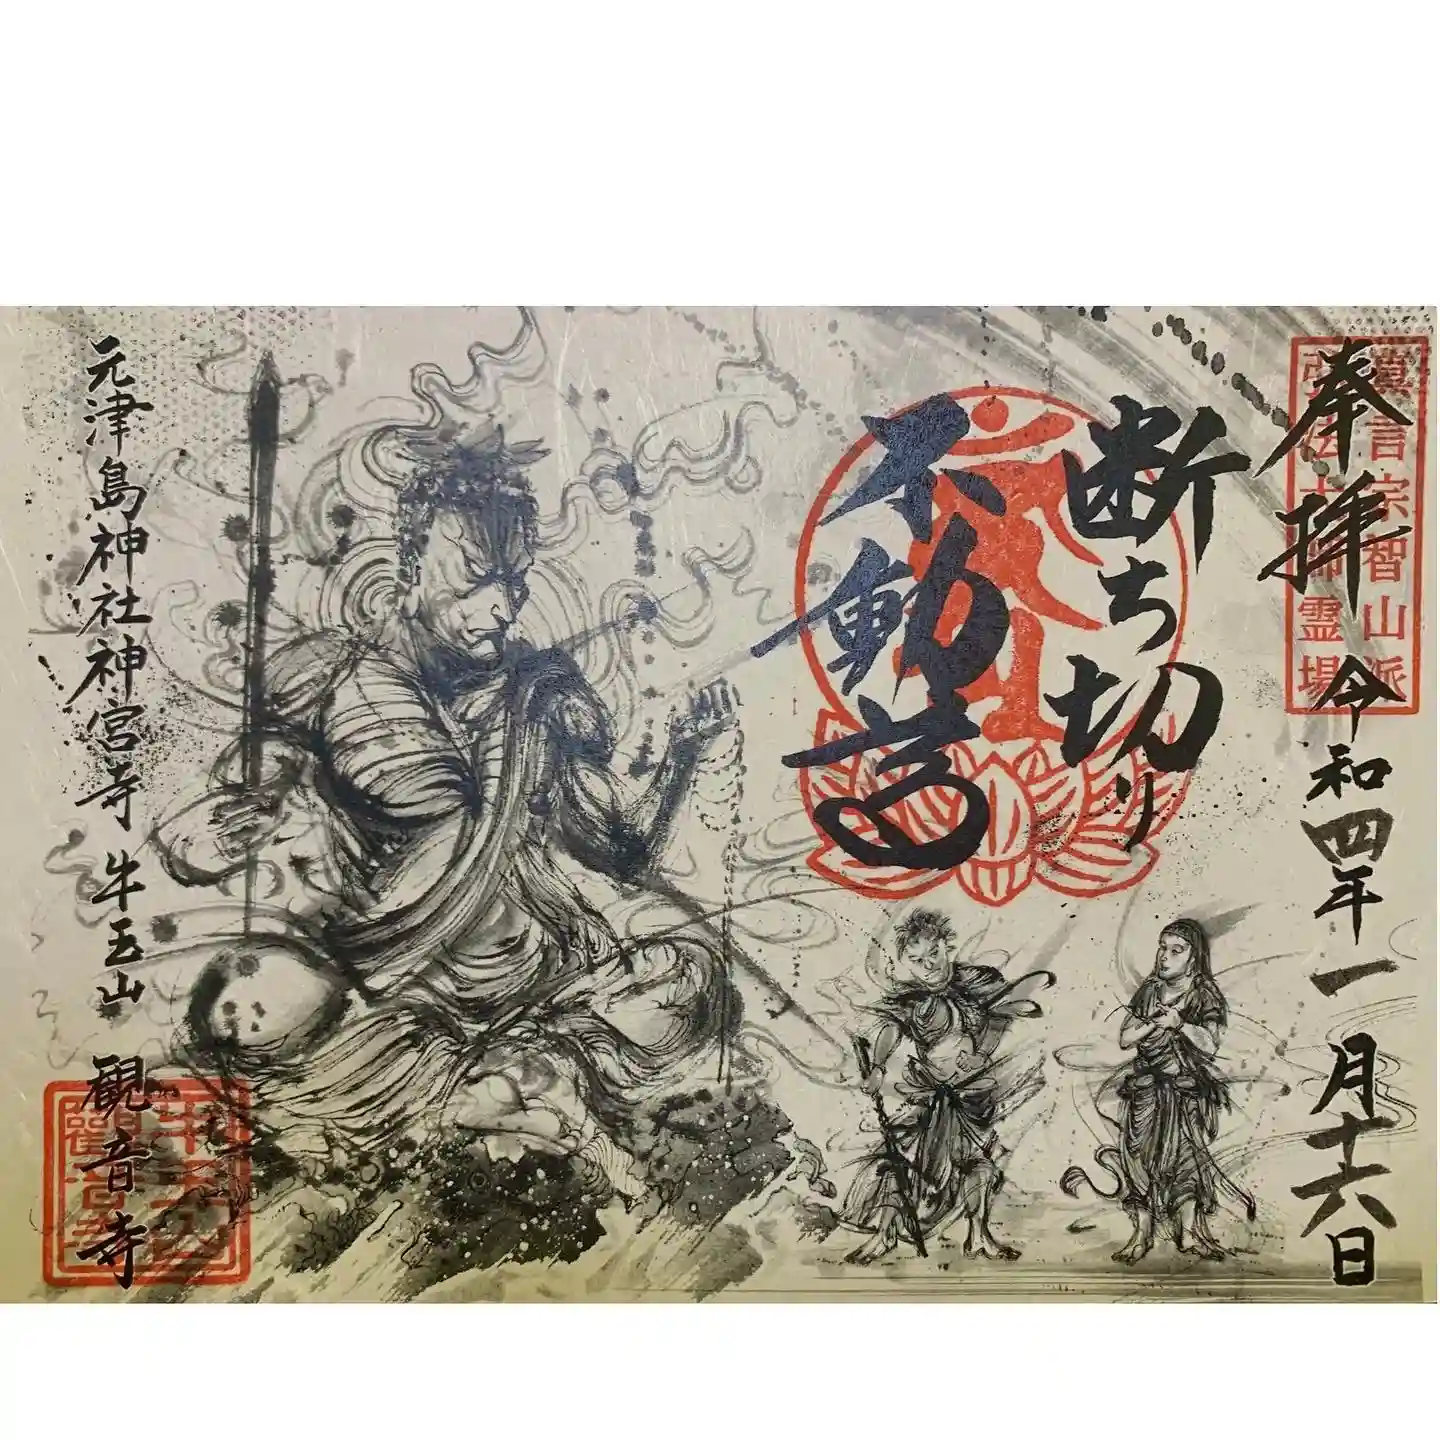 奉拝
令和四年一月十六日
真言宗智山派
弘法大師霊場
断ち切り
不動尊
元津島神社神宮寺 牛玉山 観音寺